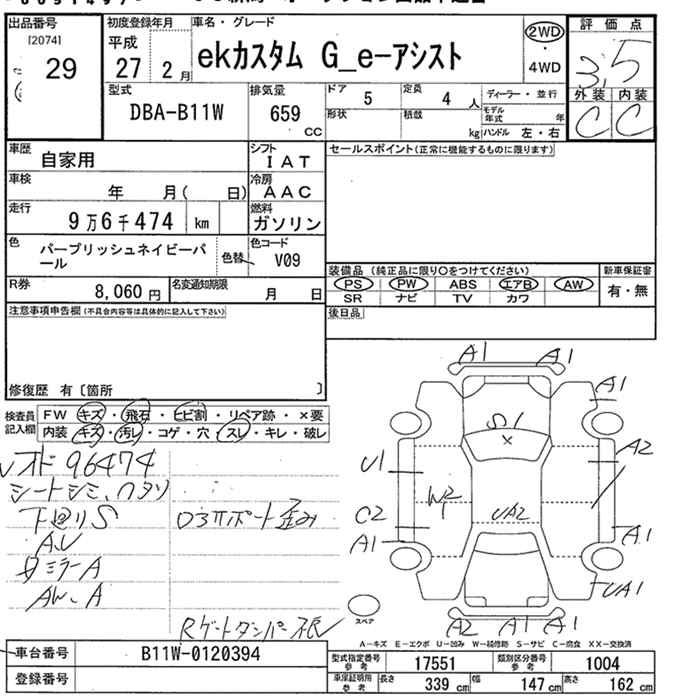 出品番号 [2074] 29
初度登録年月 平成 27 2 月
車名・グレード ekカスタム G_e-アシスト
2WD ・ 4WD
評価点 3.5
外装 内装
C C
型式 DBA-B11W
排気量 659 CC
ドア 5 定員 4 人
形状 積載 kg
ディーラー・並行
モデル年式 年
ハンドル 左・右
車歴 自家用
シフト IAT
セールスポイント(正常に機能するものに限ります)
車検 年 月( 日)
冷房 AAC
走行 9万6千474 km
燃料 ガソリン
色 パープリッシュネイビーパール
色替
色コード V09
装備品 (純正品に限り○をつけてください)
新車保証書
PS PW ABS エアB AW 有・無
SR ナビ TV カワ
R券 8,060 円
名変通知期限 月 日
後日品
注意事項申告欄(不具合内容等は具体的に記入して下さい)
修復歴 有〔箇所 〕
検査員記入欄
FW キズ・飛石・ヒビ割・リペア跡・×要
内装 キズ・汚レ・コゲ・穴・スレ・キレ・破レ
オド 96474
シートシミ、ワタリ
下廻りS
ミラーA
AW、A
A1 A1
A1
S1
×
U1
A2
W2
C2
UA2
A1
A1
UA1
A2 A1 A1
スペア
A-キズ E-エクボ U-凹み W-補修跡 S-サビ C-腐食 XX-交換済
車台番号 B11W-0120394
型式指定番号 参考 17551
類別区分番号 参考 1004
登録番号
車庫証明用 参考 長さ 339 cm 幅 147 cm 高さ 162 cm